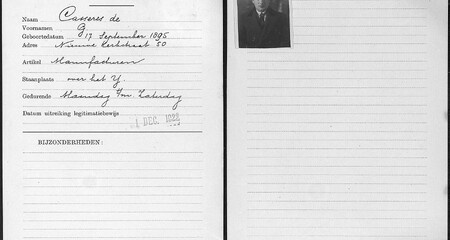 Naam Casseres de
Voornamen G
Geboortedatum 17 September 1895
Adres Nieuwe Kerkstraat 50
Artikel Manufacturen
Staanplaats over het Y.
Gedurende Maandag t/m Zaterdag
Datum uitreiking legitimatiebewijs
1 DEC.
BIJZONDERHEDEN :